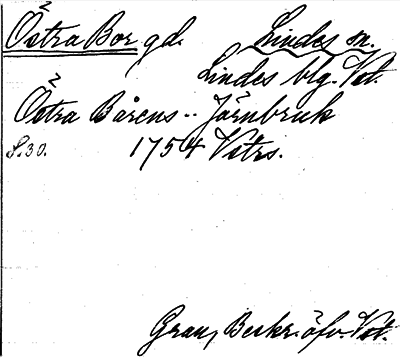 Östra Bor gd. Lindes sn.
Lindes blg. Vst.
Östra Bårens -- Järnbruk
S. 30. 1754 Vstrs.
Grau, Beskr. öfv. Vst.